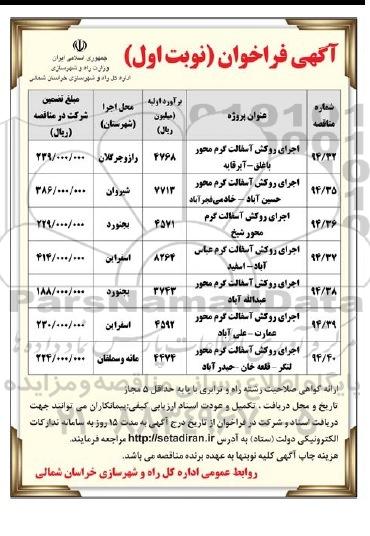 جمهوری اسلامی ایران
وزارت راه و شهرسازی
اداره کل راه و شهرسازی خراسان شمالی
آگهی فراخوان (نوبت اول)
شماره مناقصه	عنوان پروژه	برآورد اولیه (میلیون ریال)	محل اجرا (شهرستان)	مبلغ تضمین شرکت در مناقصه (ریال)
۹۴/۳۲	اجرای روکش آسفالت گرم محور باغلق-آبرقایه	۴۷۶۸	رازوجرگلان	۲۳۹/۰۰۰/۰۰۰
۹۴/۳۵	اجرای روکش آسفالت گرم محور حسین آباد - خادمی‌فجرآباد	۷۷۱۳	شیروان	۳۸۶/۰۰۰/۰۰۰
۹۴/۳۶	اجرای روکش آسفالت گرم محور شیخ	۴۵۷۱	بجنورد	۲۲۹/۰۰۰/۰۰۰
۹۴/۳۷	اجرای روکش آسفالت گرم عباس آباد - اسفید	۸۲۶۴	اسفراین	۴۱۴/۰۰۰/۰۰۰
۹۴/۳۸	اجرای روکش آسفالت گرم محور عبدالله آباد	۳۷۴۳	بجنورد	۱۸۸/۰۰۰/۰۰۰
۹۴/۳۹	اجرای روکش آسفالت گرم محور عمارت - علی آباد	۴۵۹۲	اسفراین	۲۳۰/۰۰۰/۰۰۰
۹۴/۴۰	اجرای روکش آسفالت گرم محور لنگر - قلعه خان -حیدرآباد	۴۴۷۴	مانه وسملقان	۲۲۴/۰۰۰/۰۰۰
ارائه گواهی صلاحیت رشته راه و ترابری با پایه حداقل ۵ مجاز
تاریخ و محل دریافت ، تکمیل و عودت اسناد ارزیابی کیفی:پیمانکاران می توانند جهت
دریافت اسناد و شرکت در فراخوان از تاریخ درج آگهی به مدت ۱۵ روز به سامانه تدارکات
الکترونیکی دولت (ستاد) به آدرس http://setadiran.ir مراجعه فرمایند.
هزینه چاپ آگهی کلیه نوبتها به عهده برنده مناقصه می باشد.
روابط عمومی اداره کل راه و شهرسازی خراسان شمالی
ParsNamadData